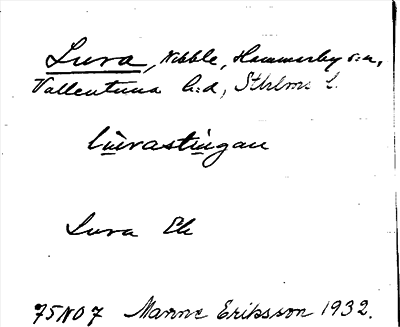 Lura, Nibble, Hammarby s:n,
Vallentuna h:d, Sthlms l.
lùrastùgan
Lura Ek
75NO7 Manne Eriksson 1932.